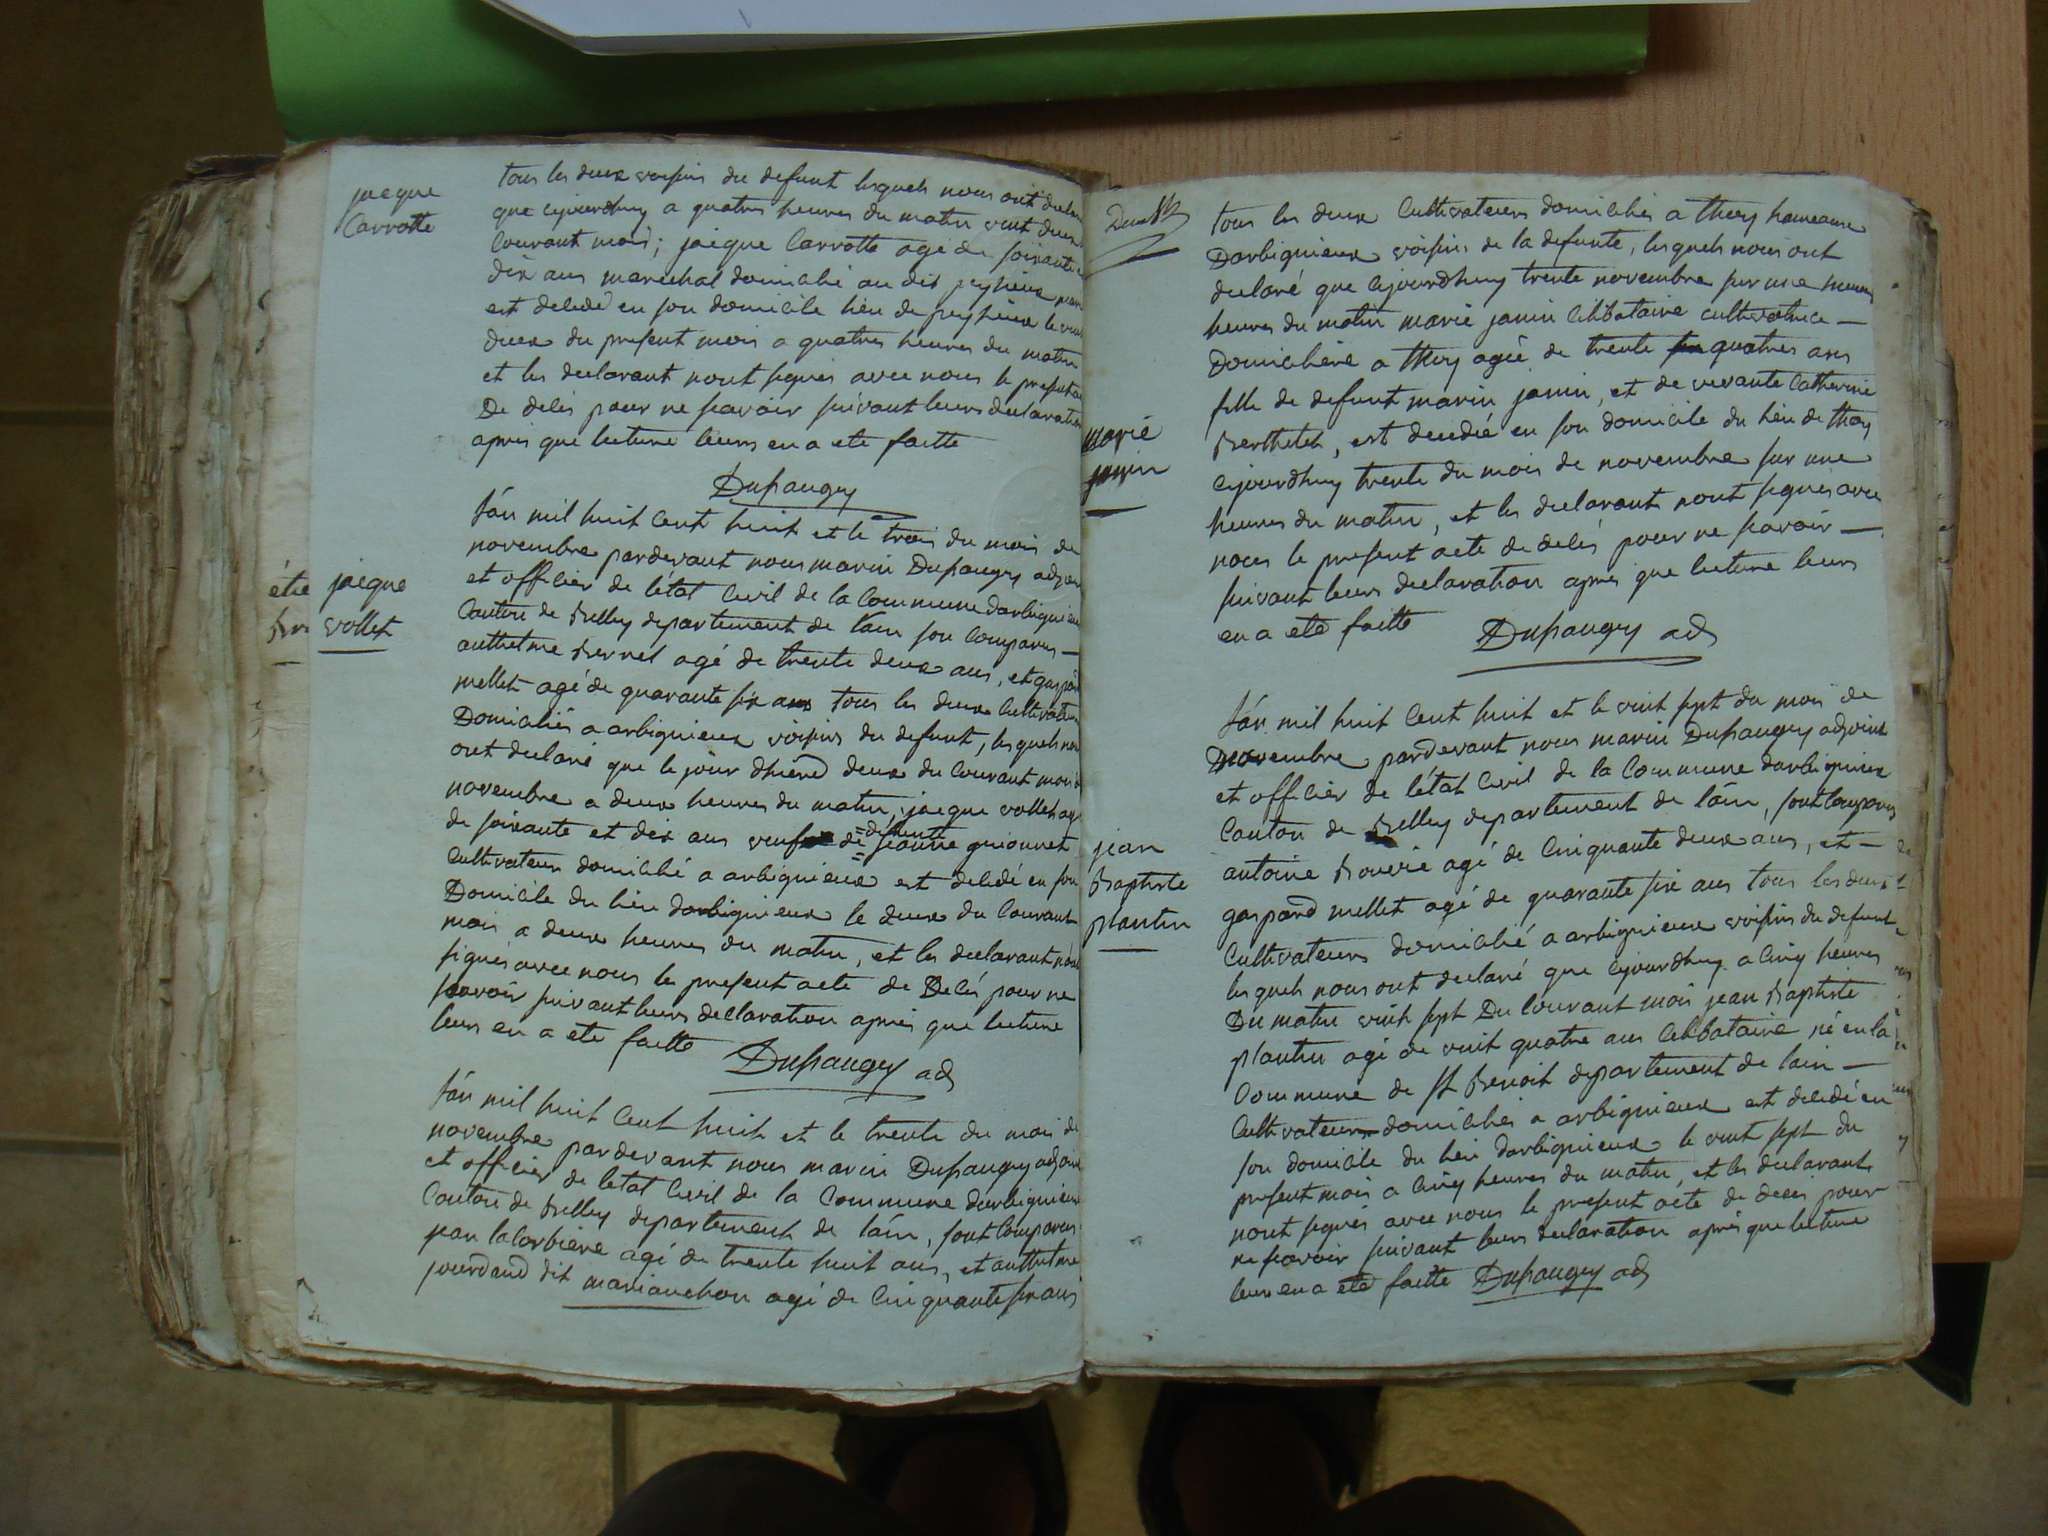 jacque
Carrotte
tous les deux voisins du defunt lesquels nous ont declaré
que cejourdhuy a quatres heures du matin vint deux
Courant mois; jacque Carrotte agé de soixante
dix ans marechal domicilié au dit peyzieux
est decedé en son domicile lieu de peyzieux le vint
deux du present mois a quatres heures du matin
et les declarant nont signés avec nous le present acte
De decés pour ne savoir suivant leurs declaration
apres que lecture leurs en a eté faitte
Dupaugey
jacque
vollet
l'an mil huit Cent huit et le trois du mois de
novembre pardevant nous marin Dupaugey adjoint
et officier de l'état Civil de la Commune darbignieux
Canton de Belley departement de lain son Comparus —
anthelme Bernel agé de trente deux ans, et gaspard
mellet agé de quarante six ans tous les deux Cultivateurs
Domiciliés a arbignieux voisins du defunt, lesquels nous
ont declaré que le jour dhiere deux du Courant mois de
novembre a deux heures du matin, jacque vollet agé
de soixante et dix ans veuf de defunte jeanne guionnet
Cultivateur domicilié a arbignieux est decedé en son
Domicile du lieu darbignieux le deux du Courant
mois a deux heures du matin, et les declarant nont
signés avec nous le present acte de Decés pour ne
savoir suivant leurs declaration apres que lecture
leurs en a eté faitte Dupaugey ad
l'an mil huit Cent huit et le trente du mois de
novembre pardevant nous marin Dupaugey adjoint
et officier de letat Civil de la Commune darbignieux
Canton de Belley departement de lain, sont Comparus
jean laCorbiere agé de trente huit ans, et anthelme
jourdand dit marianchon agé de Cinquante six ans
tous les deux Cultivateurs domiciliés a thoy hameaux
Darbignieux voisins de la defunte, lesquels nous ont
declaré que cejourdhuy trente novembre sur une heures
heures du matin marie janin Celibataire cultivatrice —
Domicilière a thoy agée de trente six quatres ans
fille de defunt marin janin, et de vevante Catherine
Berthelet, est decedée en son domicile du lieu de thoy
cejourdhuy trente du mois de novembre sur une
heures du matin, et les declarant nont signés avec
nous le present acte de decés pour ne savoir —
suivant leurs declaration apres que lecture leurs
en a eté faitte Dupaugey ad
marie
janin
jean
Baptiste
plantin
l'an mil huit Cent huit et le vint sept du mois de
Novembre pardevant nous marin Dupaugey adjoint
et officier de l'état Civil de la Commune darbignieux
Canton de Belley departement de lain, sont Comparus
antoine Bouvié agé de Cinquante deux ans, et —
gaspard mellet agé de quarante six ans tous les deux
Cultivateurs domicilié a arbignieux voisins du defunt
lesquels nous ont declaré que cejourdhuy a Cinq heures
Du matin vint sept Du Courant mois jean Baptiste
plantin agé de vint quatre ans Celibataire né en la
Commune de St Benoit departement de lain —
Cultivateur domiciliés a arbignieux est decedé en
son domicile du lieu darbignieux le vint sept du
present mois a Cinq heures du matin, et les declarant
nont signés avec nous le present acte de decés pour
ne savoir suivant leurs declaration après que lecture
leurs en a eté faitte Dupaugey ad